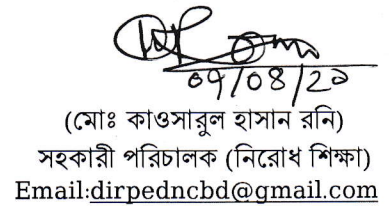 ০৭/০৪/২১
(মোঃ কাওসারুল হাসান রনি)
সহকারী পরিচালক (নিরোধ শিক্ষা)
Email:dirpedncbd@gmail.com